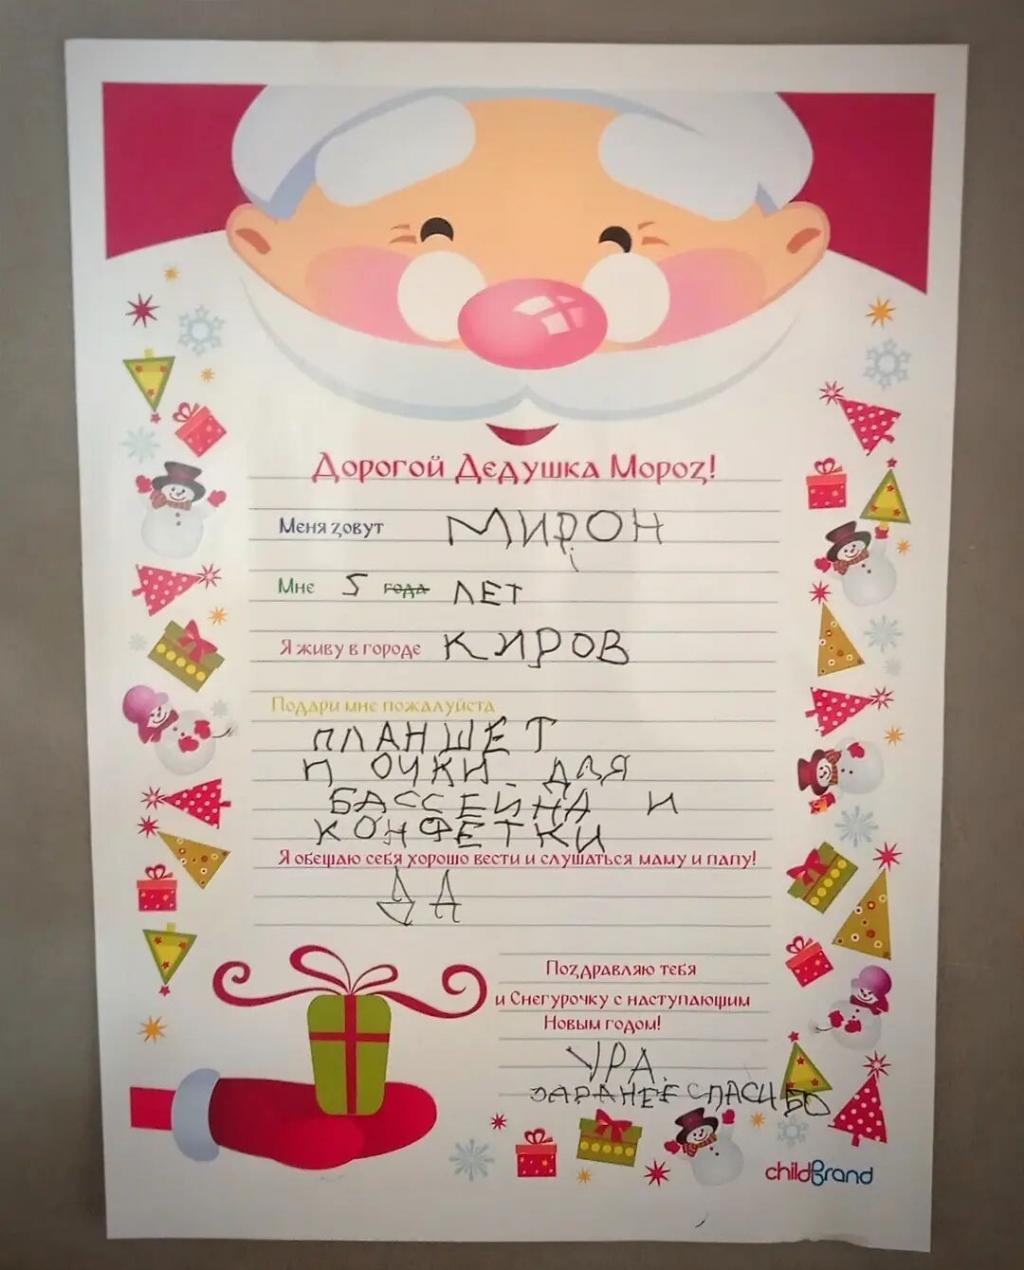 Дорогой Дедушка Мороз!
Меня зовут МИРОН
Мне 5 года ЛЕТ
Я живу в городе КИРОВ
Подари мне пожалуйста
ПЛАНШЕТ
П ОЧКИ ДЛЯ
БАССЕЙНА И
КОНФЕТКИ
Я обещаю себя хорошо вести и слушаться маму и папу!
ДА
Поздравляю тебя
и Снегурочку с наступающим
Новым годом!
УРА
ЗАРАНЕЕ СПАСИБО
childBrand